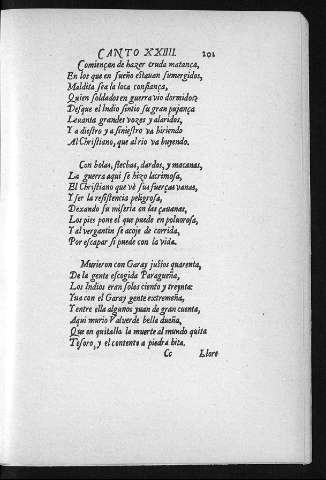 CANTO XXIIII. 201
Comiençan de hazer cruda matança,
En los que en sueño estauan sumergidos,
Maldita sea la loca confiança,
Quien soldados en guerra vio dormidos?
Desque el Indio sintio su gran pujança
Leuanta grandes vozes y alaridos,
Y a diestro y a siniestro va hiriendo
Al Christiano, que al rio va huyendo.
Con bolas, flechas, dardos, y macanas,
La guerra aqui se hizo lacrimosa,
El Christiano que vè sus fuerças vanas,
Y ser la resistencia peligrosa,
Dexando su miseria en las çauanas,
Los pies pone el que puede en poluorosa,
Y al vergantin se acoje de corrida,
Por escapar si puede con la vida.
Murieron con Garay justos quarenta,
De la gente escogida Paragueña,
Los Indios eran solos ciento y treynta:
Yua con el Garay gente estremeña,
Y entre ella algunos yuan de gran cuenta,
Aqui murio Valverde bella dueña,
Que en quitalla la muerte al mundo quita
Tesoro, y el contento a piedra hita.
Cc Llore